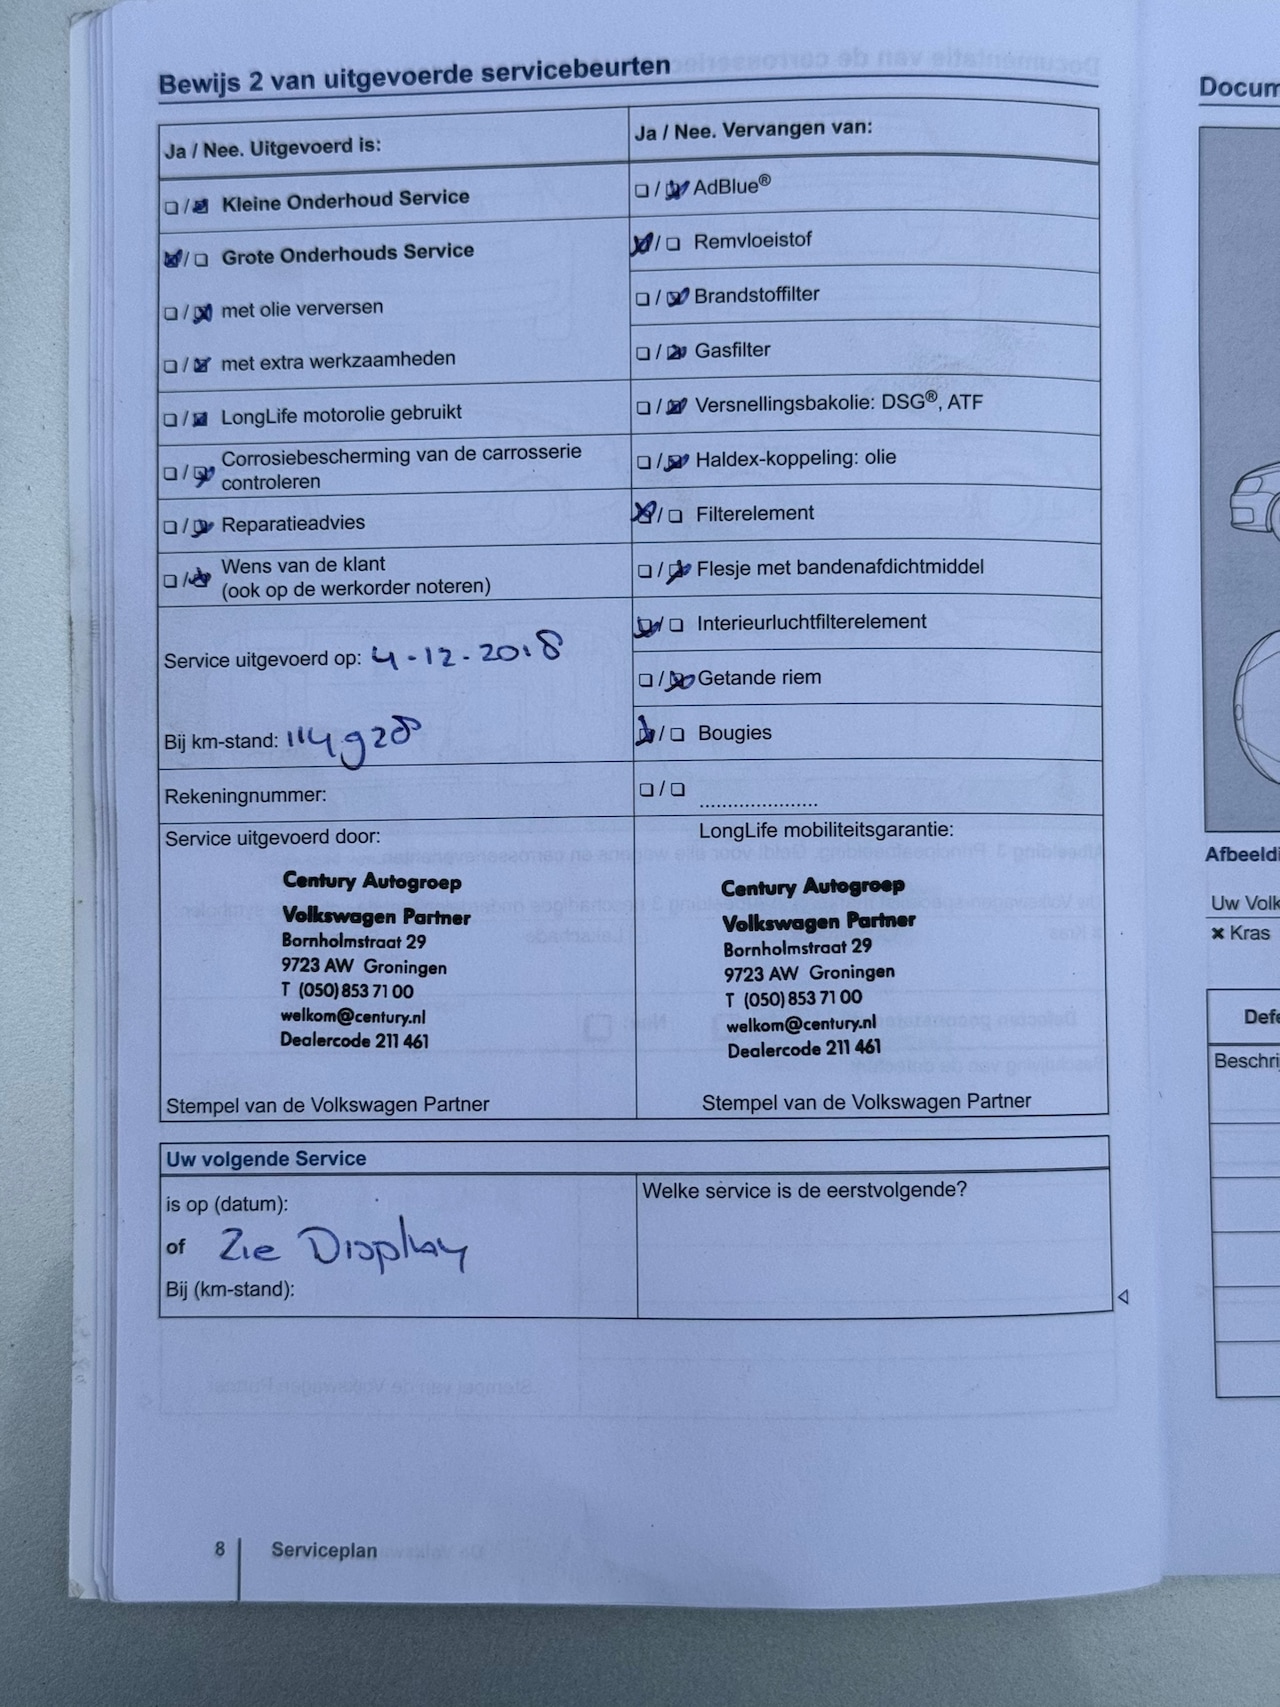 Bewijs 2 van uitgevoerde servicebeurten
Ja / Nee. Uitgevoerd is:
☐ / ☒ Kleine Onderhoud Service
☒ / ☐ Grote Onderhouds Service
☐ / ☒ met olie verversen
☐ / ☒ met extra werkzaamheden
☐ / ☒ LongLife motorolie gebruikt
☐ / ☒ Corrosiebescherming van de carrosserie
controleren
☐ / ☒ Reparatieadvies
☐ / ☒ Wens van de klant
(ook op de werkorder noteren)
Service uitgevoerd op: 4-12-2018
Bij km-stand: 114928
Rekeningnummer:
Ja / Nee. Vervangen van:
☐ / ☒ AdBlue®
☒ / ☐ Remvloeistof
☐ / ☒ Brandstoffilter
☐ / ☒ Gasfilter
☐ / ☒ Versnellingsbakolie: DSG®, ATF
☐ / ☒ Haldex-koppeling: olie
☒ / ☐ Filterelement
☐ / ☒ Flesje met bandenafdichtmiddel
☒ / ☐ Interieurluchtfilterelement
☐ / ☒ Getande riem
☒ / ☐ Bougies
☐ / ☐ .....................
Service uitgevoerd door:
Century Autogroep
Volkswagen Partner
Bornholmstraat 29
9723 AW Groningen
T (050) 853 71 00
welkom@century.nl
Dealercode 211 461
Stempel van de Volkswagen Partner
LongLife mobiliteitsgarantie:
Century Autogroep
Volkswagen Partner
Bornholmstraat 29
9723 AW Groningen
T (050) 853 71 00
welkom@century.nl
Dealercode 211 461
Stempel van de Volkswagen Partner
Uw volgende Service
is op (datum):
of Zie Display
Bij (km-stand):
Welke service is de eerstvolgende?
8
Serviceplan
Docum
Afbeeldi
Uw Volk
× Kras
Defe
Beschri